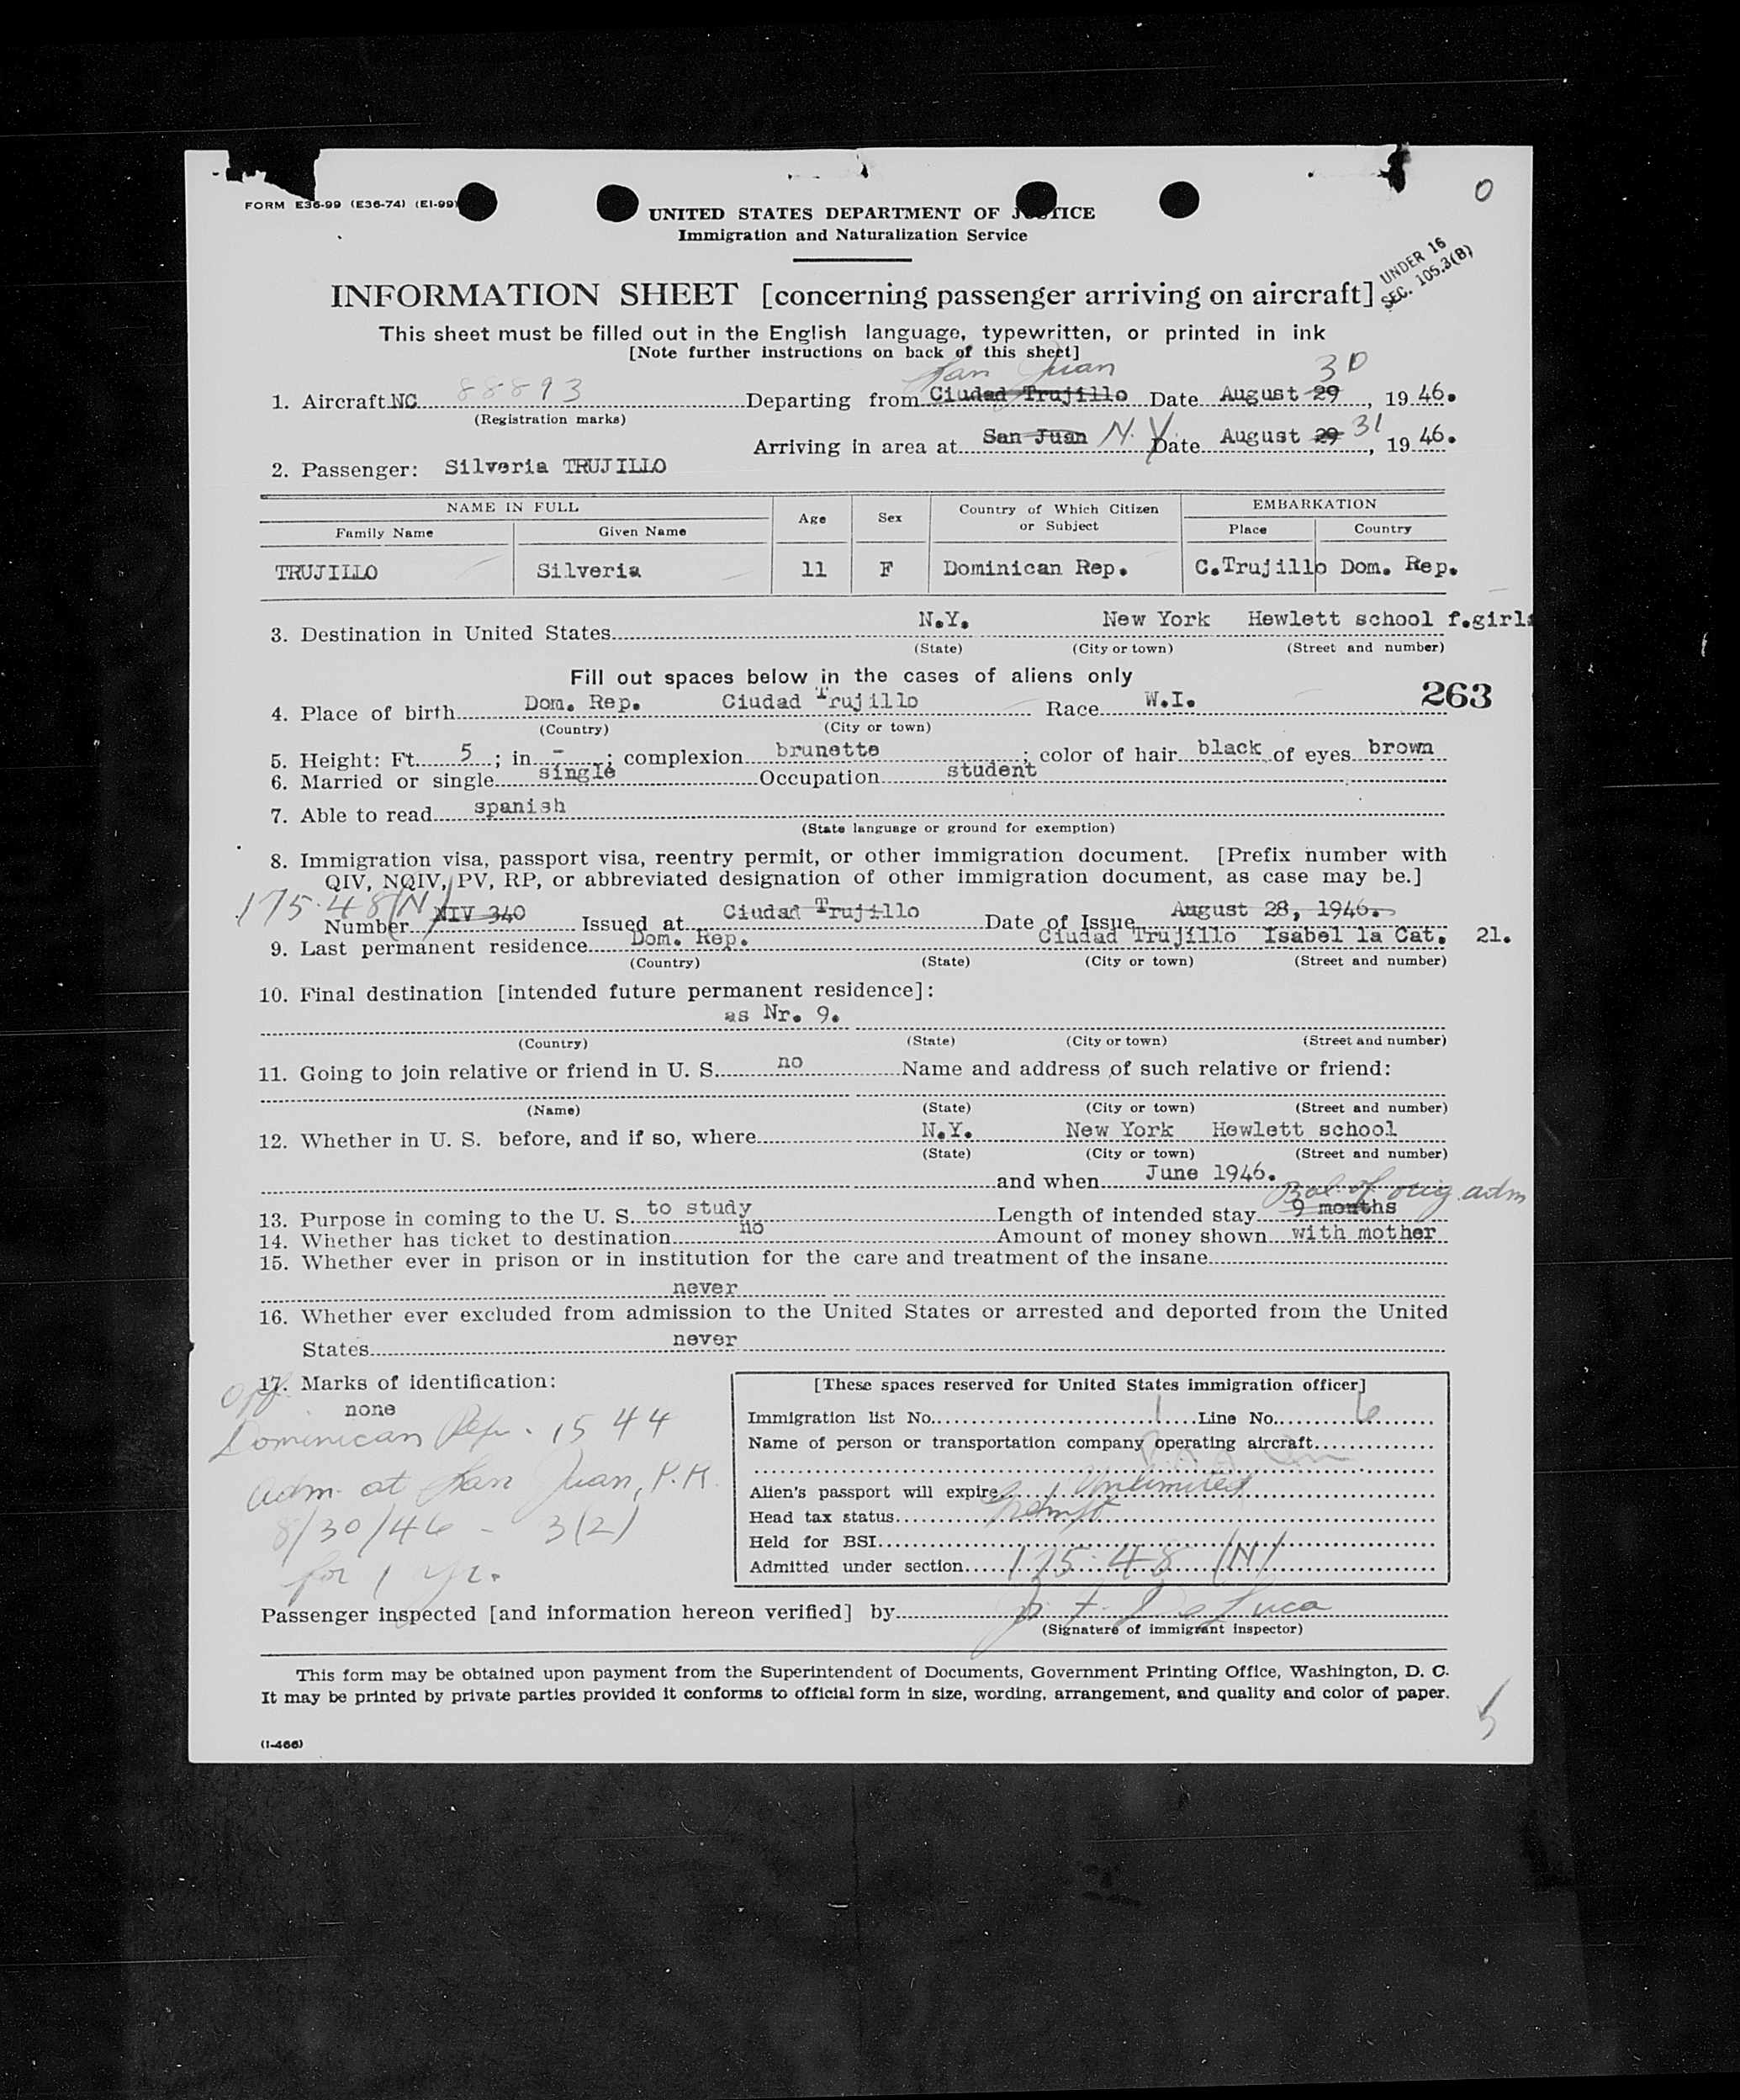 O
FORM E36-99 (E36-74) (EI-99)
UNITED STATES DEPARTMENT OF JUSTICE
Immigration and Naturalization Service
UNDER 16
SEC. 105.3(B)
INFORMATION SHEET [concerning passenger arriving on aircraft]
This sheet must be filled out in the English language, typewritten, or printed in ink
[Note further instructions on back of this sheet]
San Juan 30
1. Aircraft NC 88893 Departing from Ciudad Trujillo Date August 29, 19 46.
(Registration marks)
Arriving in area at San Juan N.Y. Date August 29 31, 19 46.
2. Passenger: Silveria TRUJILLO
NAME IN FULL Age Sex Country of Which Citizen or Subject EMBARKATION
Family Name Given Name Place Country
TRUJILLO Silveria 11 F Dominican Rep. C.Trujillo Dom. Rep.
3. Destination in United States N.Y. New York Hewlett school f.girls
(State) (City or town) (Street and number)
Fill out spaces below in the cases of aliens only
263
4. Place of birth Dom. Rep. Ciudad Trujillo Race W.I.
(Country) (City or town)
5. Height: Ft. 5; in -; complexion brunette; color of hair black of eyes brown
6. Married or single single Occupation student
7. Able to read spanish
(State language or ground for exemption)
8. Immigration visa, passport visa, reentry permit, or other immigration document. [Prefix number with
QIV, NQIV, PV, RP, or abbreviated designation of other immigration document, as case may be.]
175.48(N)
Number NIV 340 Issued at Ciudad Trujillo Date of Issue August 28, 1946.
9. Last permanent residence Dom. Rep. Ciudad Trujillo Isabel la Cat. 21.
(Country) (State) (City or town) (Street and number)
10. Final destination [intended future permanent residece]:
as Nr. 9.
(Country) (State) (City or town) (Street and number)
11. Going to join relative or friend in U. S. no Name and address of such relative or friend:
(Name) (State) (City or town) (Street and number)
12. Whether in U. S. before, and if so, where N.Y. New York Hewlett school
(State) (City or town) (Street and number)
and when June 1946.
Bal. of orig. adm
13. Purpose in coming to the U. S. to study Length of intended stay 9 months
14. Whether has ticket to destination no Amount of money shown with mother
15. Whether ever in prison or in institution for the care and treatment of the insane
never
16. Whether ever excluded from admission to the United States or arrested and deported from the United
States never
17. Marks of identification:
none
Off.
Dominican Rep. 1544
adm. at San Juan, P.R.
8/30/46 - 3(2)
for 1 yr.
[These spaces reserved for United States immigration officer]
Immigration list No. 1 Line No. 6
Name of person or transportation company operating aircraft
Alien's passport will expire Unlimited
Head tax status
Held for BSI
Admitted under section 175.48 (N)
Passenger inspected [and information hereon verified] by De Luca
(Signature of immigrant inspector)
This form may be obtained upon payment from the Superintendent of Documents, Government Printing Office, Washington, D. C.
It may be printed by private parties provided it conforms to official form in size, wording, arrangement, and quality and color of paper.
(I-466)